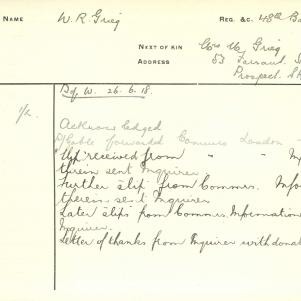 NAME W. R. Greig REG. &C. 48th Ba
NEXT OF KIN
ADDRESS
Greig
53 Farrand S
Prospect. S.A
B of W. 26.6.18.
1/2. Acknowledged
Cable forwarded Commrs London -
Slip received from " " Inf
therein sent Inquirer
Further slip from Commrs. Infor
therein sent Inquirer
Later slips from Commrs. Information
Inquirer.
Letter of thanks from Inquirer with donat